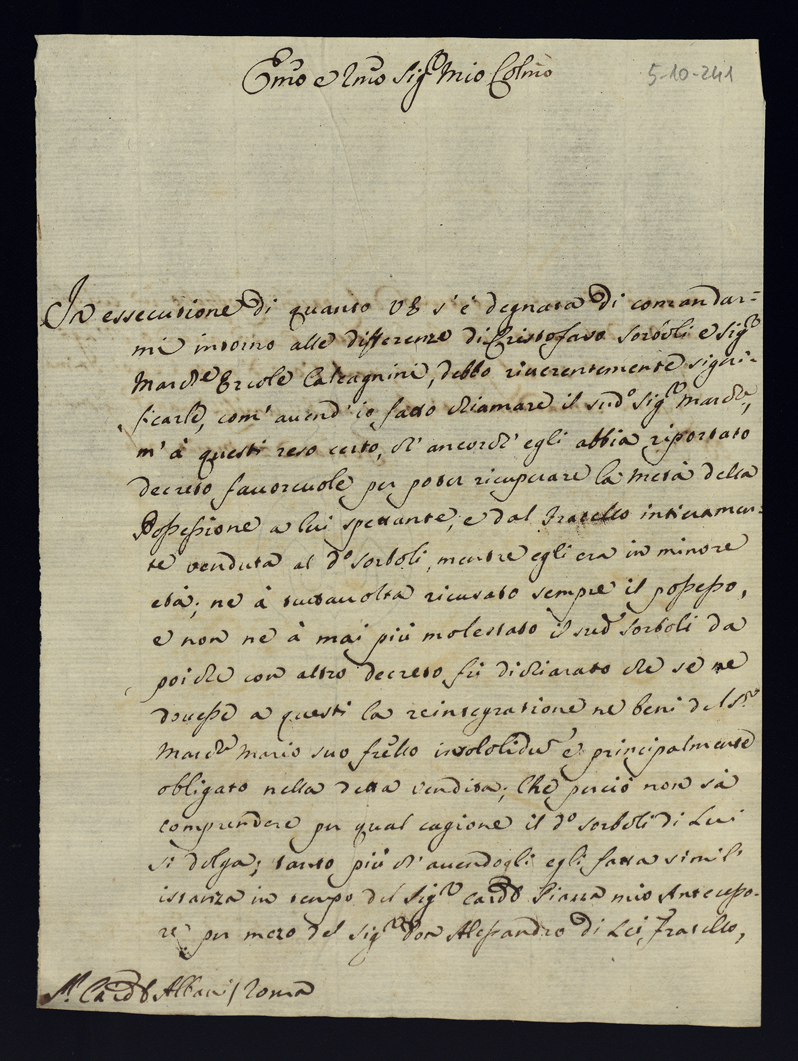 Emo e Rmo Sig.r Mio Colmo
5-10-241
In essecutione di quanto VE s'è degnata di comandar=
mi intorno alle differenze di Cristofaro Sorboli e Sig.r
March.e Ercole Calcagnini, debbo riverentemente signi-
ficarle, com'avend'io fatto chiamare il sud.o Sig.r March.e,
m'à questi reso certo, ch'ancorch'egli abbia riportato
decreto favorevole per poter ricuperare la metà della
Possessione a lui spettante, e dal Fratello intieramen-
te venduta al d.o Sorboli, mentre egli era in minore
età; ne à tuttavolta ricusato sempre il possesso,
e non ne à mai più molestato il sud.o Sorboli da
poi che con altro decreto fù dichiarato che se ne
dovesse a questi la reintegratione ne beni del S.r
March.e Mario suo frello insolidu e principalmente
obligato nella detta vendita; Che perciò non sà
comprendere per qual cagione il d.o Sorboli di Lui
si dolga; tanto più ch'avendogli egli fatta simil'
istanza in tempo del Sig.r Card.l Piazza mio Antecesso-
re per mezo del Sig.r Don Alessandro di Lei Fratello,
S.r Card.l Albani / Roma